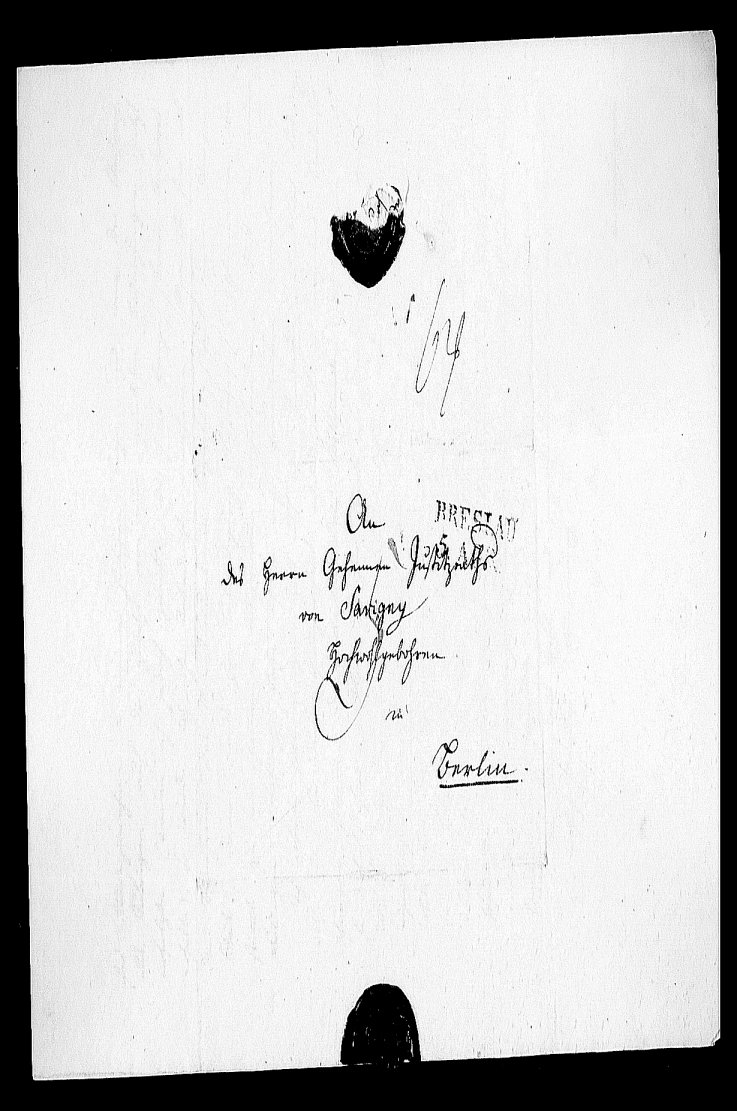 An
des Herrn Geheimen Justizraths
von Savigny
Hochwohlgebohren
in
Berlin.
BRESLAU